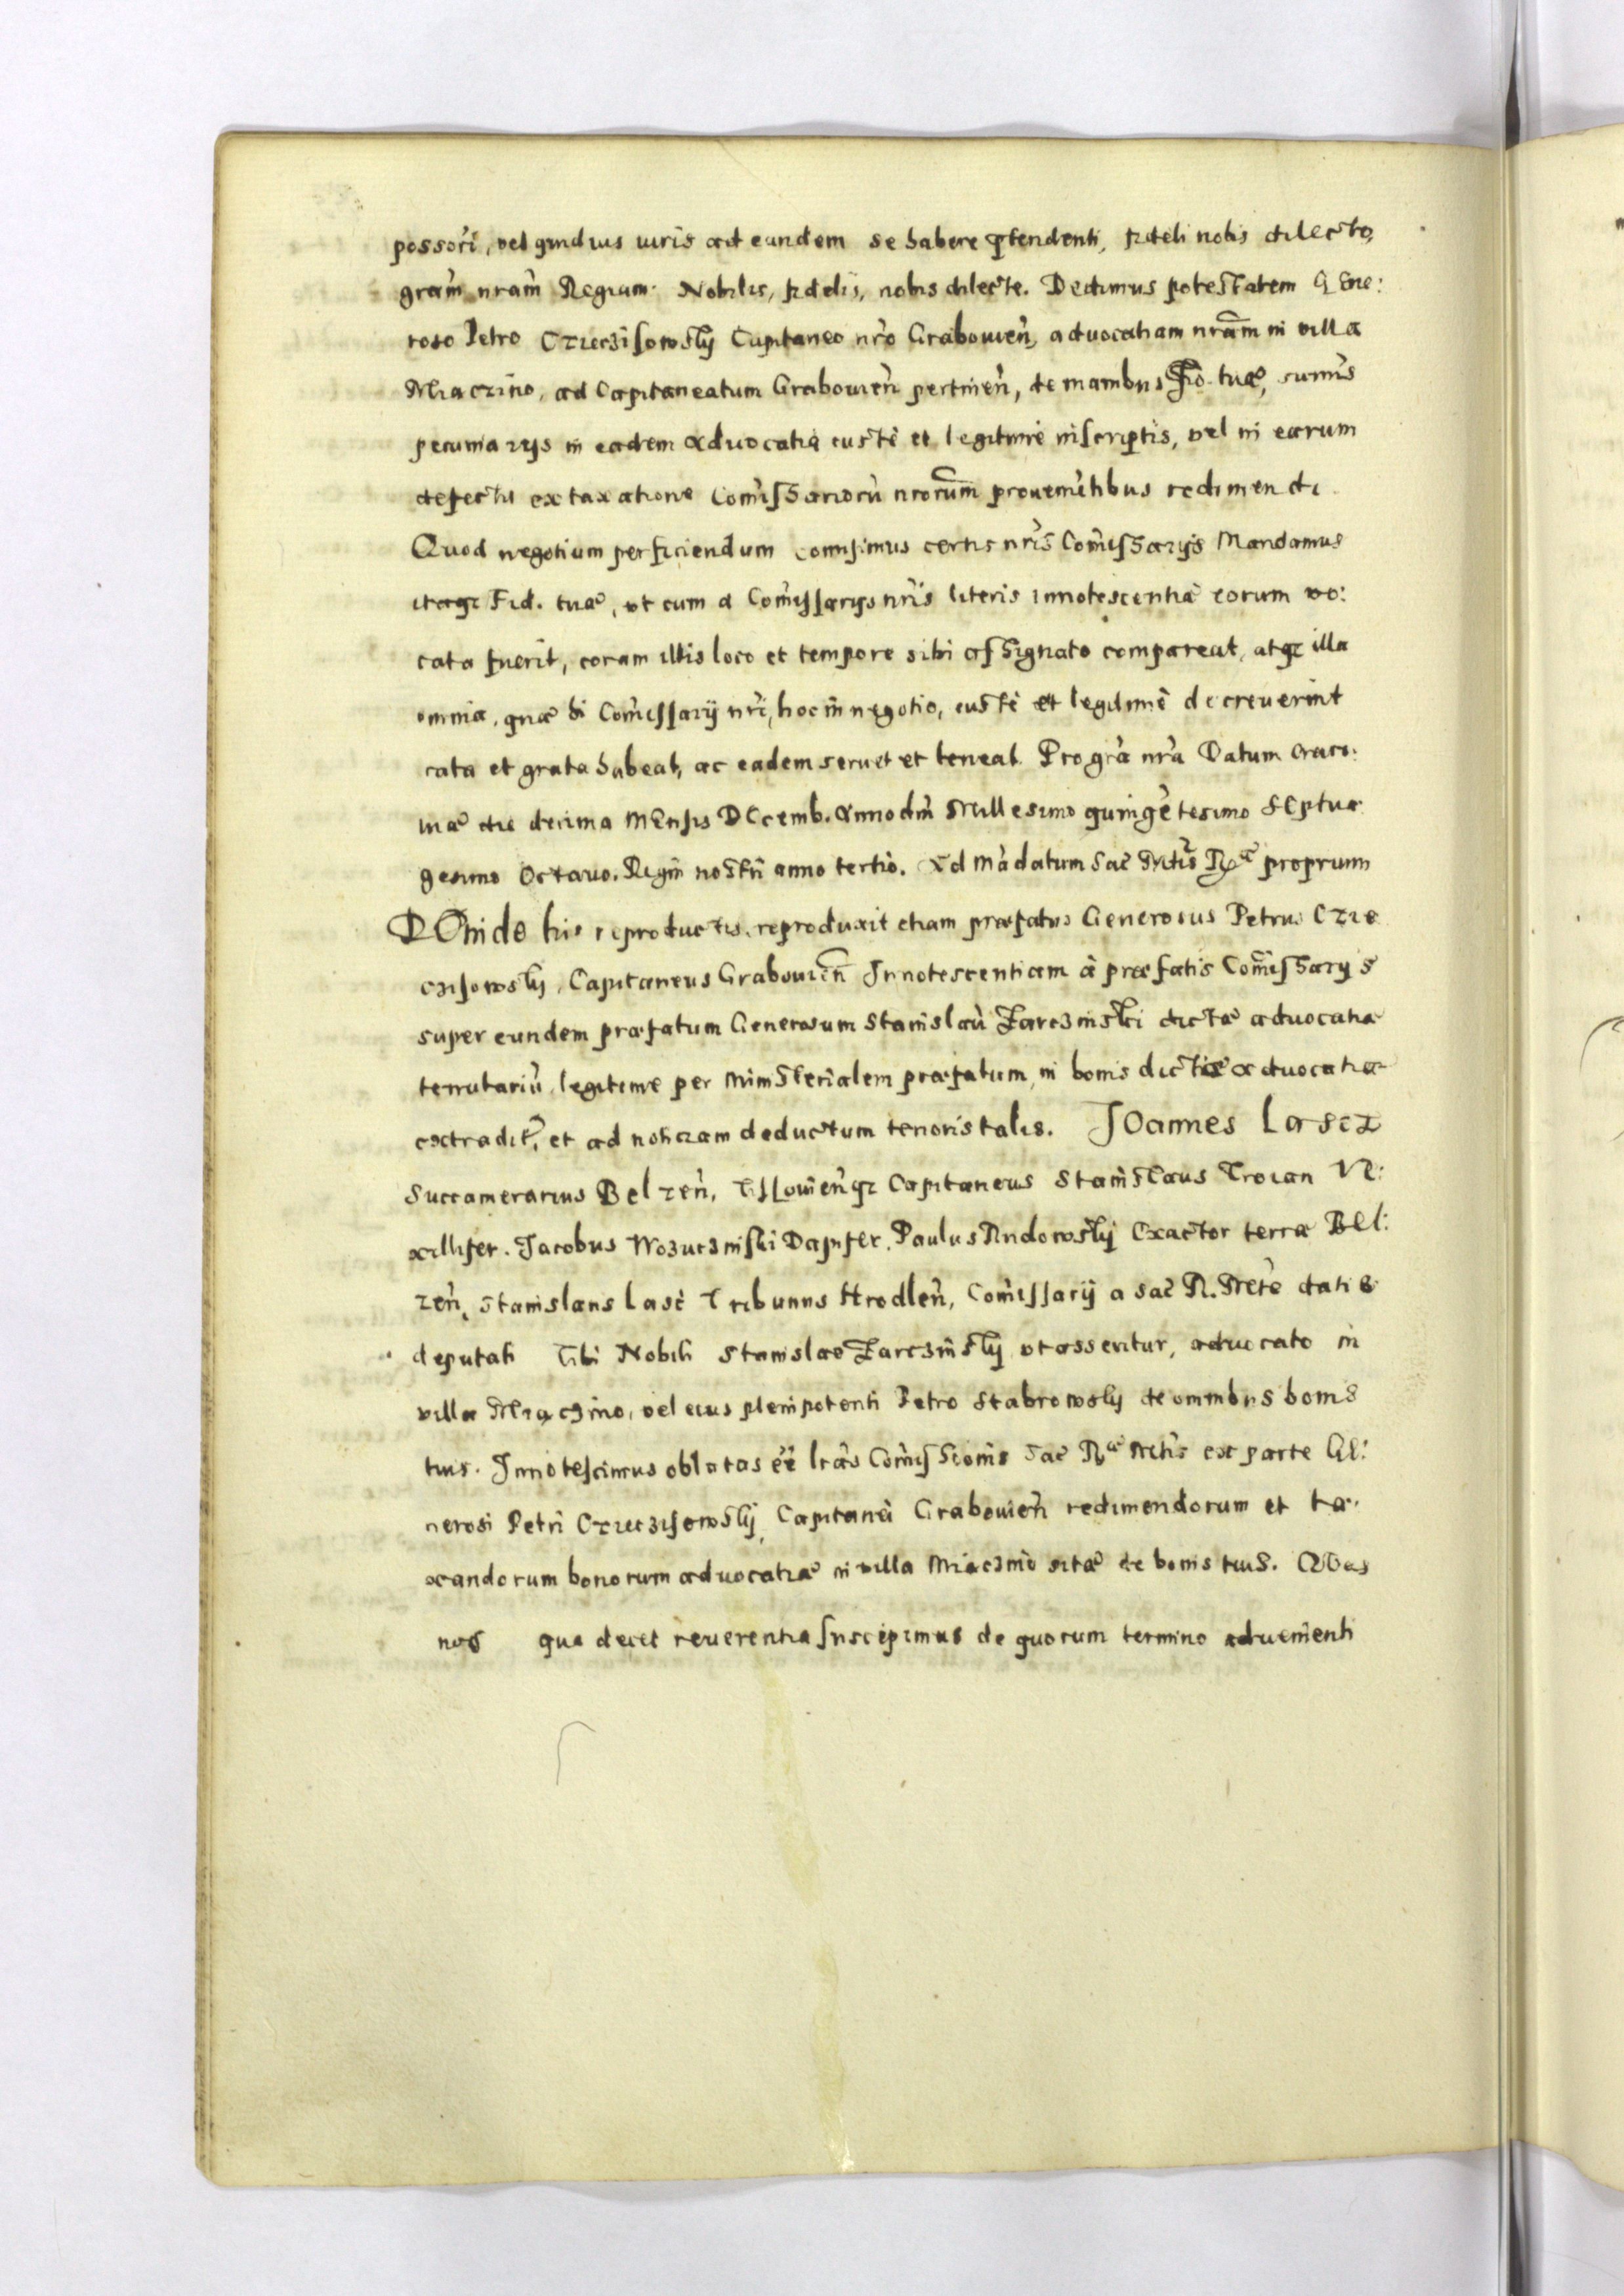 possori, vel quidvis iuris ad eundem se habere prtendenti, fideli nobis dilecto,
gram̀ nram̀ Regiam. Nobilis, fidelis, nobis dilecte. Dedimus potestatem Gene:
roso Petro Czierzisowsky Capitaneo nr̀o Grabouien̄, aduocatiam nram̄ in villa
Miaczino, ad Capitaneatum Grabouien̄ pertinen̄, de manibus Fid. tuæ, sum̀is
pecuniarijs in eadem aduocatia iustè et legitimè inscriptis, vel in earum
defectu ex taxatione Com̀issariorù nrorum̄ prouenien̄tibus redimendi.
Quod negotium perficiendum comisimus certis nrìs Com̀issarijs Mandamus
itaqz Fid. tuæ, vt cum a Com̀issarijs nrìs literis innotescentiæ eorum vo:
cata fuerit, coram illis loco et tempore sibi assignato compareat, atqz illa
omnia, quæ hi Com̀issarij nrì, hoc in negotio, iustè et legitimè decreuerint
rata et grata habeat, ac eadem seruet et teneat. Pro grà nrà Datum Craco:
uiæ die decima Mensis Decemb. Anno dn̄i Millesimo quingētesimo Septua
gesimo Octauo. Regni nostri anno tertio. Ad mādatum Sac̄ Mtis̄ Ræ proprium
DEinde his reproductis, reproduxit etiam præfatus Generosus Petrus Czie
rzisowsky, Capitaneus Grabouien̄ Innotescentiam à præfatis Com̄issarys
super eundem præfatum Generosum Stanislaù Zarczinski dictæ aduocatiæ
tenutariù, legitime per Ministerialem præfatum, in bonis dictæ aduocatiæ
extradit̄, et ad noticiam deductum tenoris talis. JOannes Lascz
Succamerarius Belzen̄, Tissouien̄qz Capitaneus Stanislaus Troian Ve:
xillifer. Jacobus Wozuczinski Dapifer. Paulus Rudowsky Exactor terræ Bel:
zen̄, Stanislaus Lasc̀ Tribunus Hrodlen̄, Com̀issarij a Sac̄ R. Mtè dati &
deputati Tibi Nobili Stanislao Zarczinsky vt asseritur, aduocato in
villa Miączino, vel eius plenipotenti Petro Stabrowsky de omnibus bonis
tuis. Innotescimus oblatas eè lràs Com̀issionis Sac̄ Ræ Mtìs ex parte Ge:
nerosi Petri Czierzisowsky, Capitanei Grabouien̄ redimendorum et ta:
xandorum bonorum aduocatiæ in villa Miaczino sitæ de bonis tuis. QVas
nos qua decet reuerentia suscepimus de quorum termino aduenienti